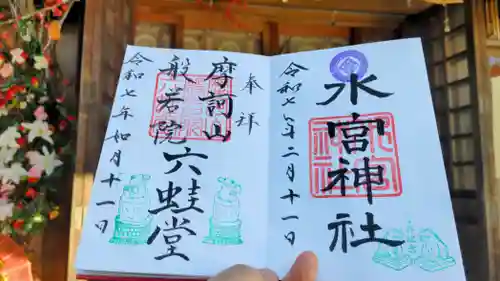 水宮神社
令和七年二月十一日
奉拝
摩訶山
般若院
六蛙堂
令和七年如月十一日